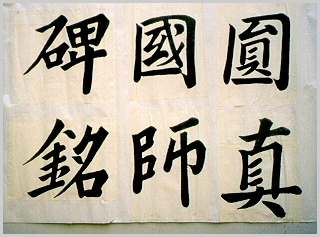 圓真
國師
碑銘